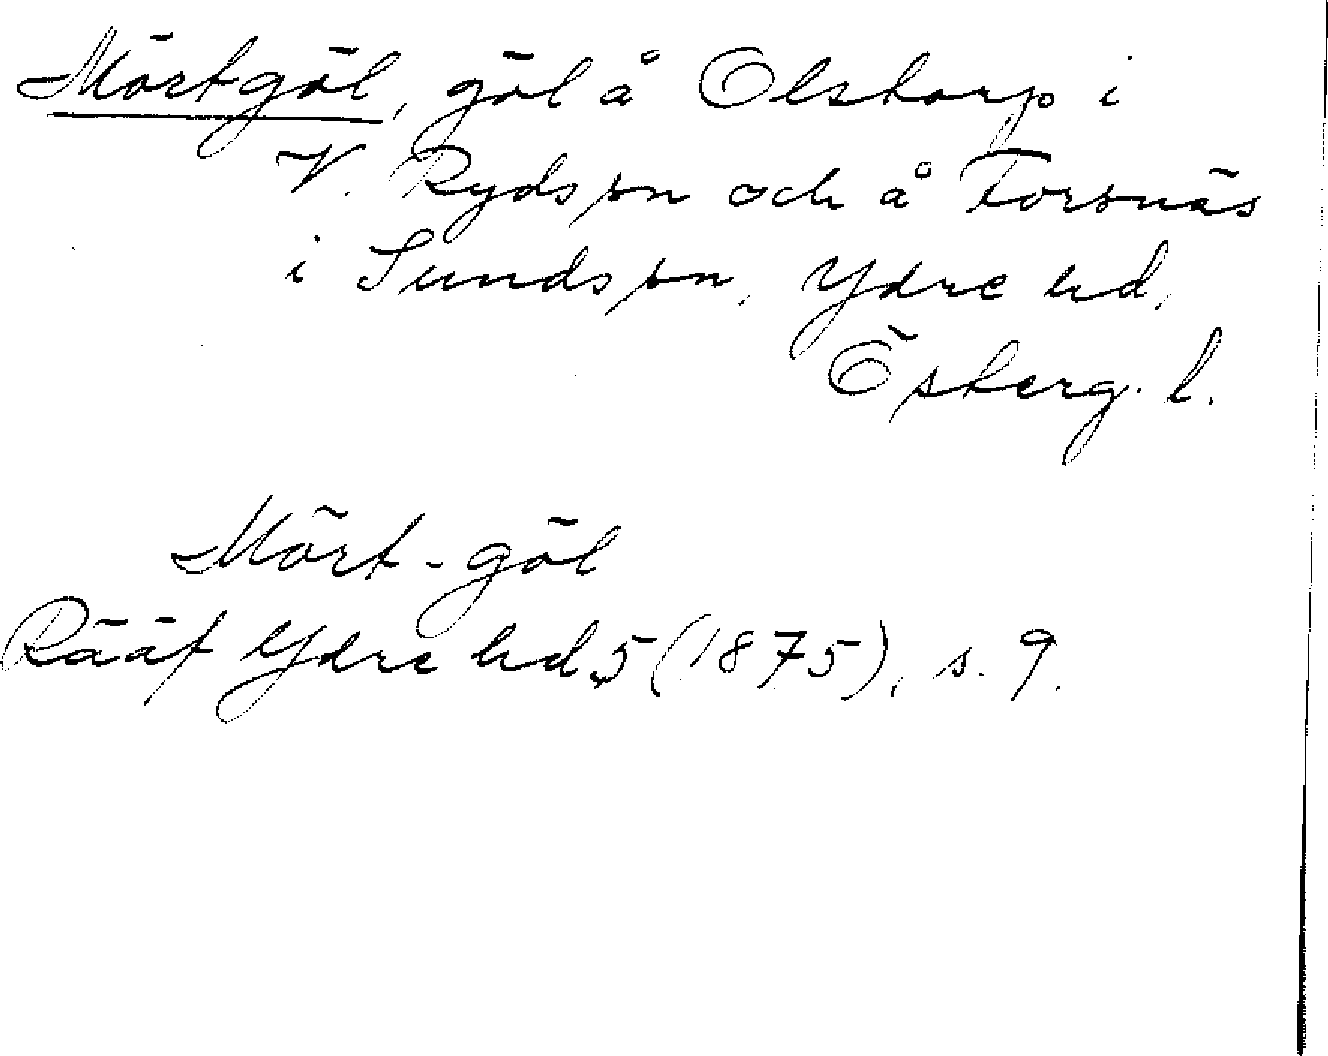 Mörtgöl, göl å Olstorp i
V. Ryds sn och å Forsnäs
i Sunds sn, Ydre hd,
Österg. l.
Mört-göl
Rääf Ydre hd 5 (1875), s. 9.